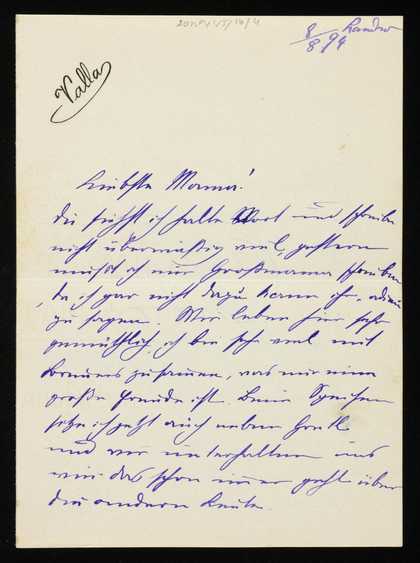 8/8 94
Valla
Liebste Mama!
Du siehst ich halte Wort und schreibe
nicht übermäßig viel, gestern
mußt ich nur Großmama schreiben
da ich gar nicht dazu kam ihr adieu
zu sagen. Wir leben hier sehr
gemüthlich, ich bin sehr viel mit
zusammen, was mir eine
große Freude ist. Beim Speisen
sitze ich jetzt auch neben Gretl
und wir unterhalten uns
wie das schon immer geht über
die andern Leute.